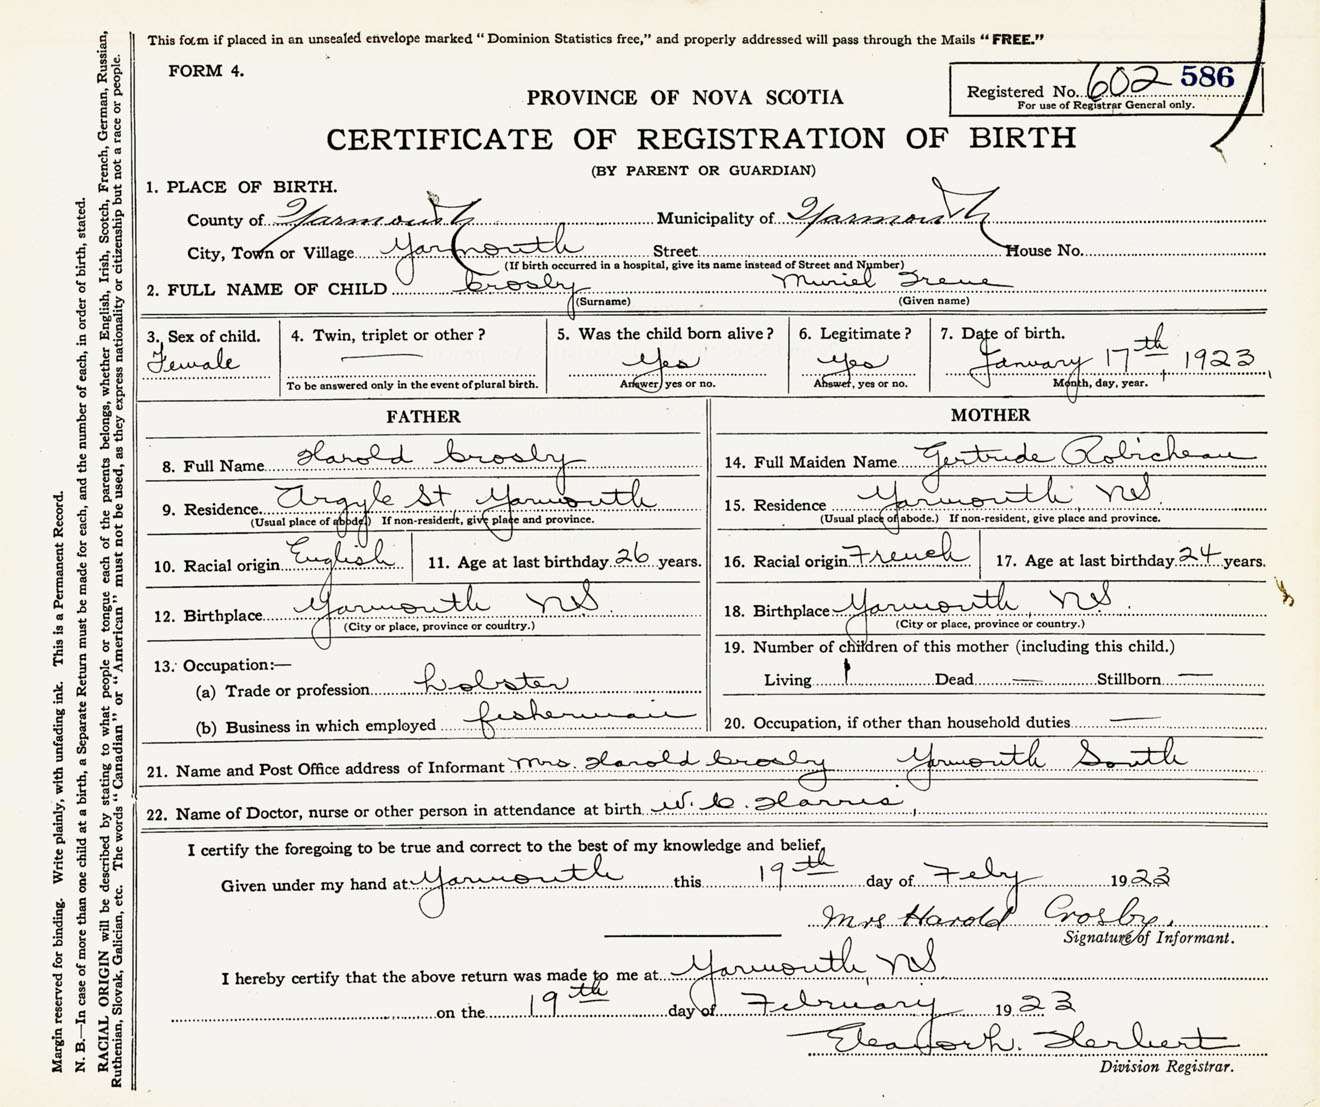 This form if placed in an unsealed envelope marked "Dominion Statistics free," and properly addressed will pass through the Mails "FREE."
FORM 4.
Registered No. 602 586
For use of Registrar General only.
PROVINCE OF NOVA SCOTIA
CERTIFICATE OF REGISTRATION OF BIRTH
(BY PARENT OR GUARDIAN)
1. PLACE OF BIRTH.
County of Yarmouth Municipality of Yarmouth
City, Town or Village Yarmouth Street House No.
(If birth occurred in a hospital, give its name instead of Street and Number)
2. FULL NAME OF CHILD Crosby Muriel Irene
(Surname) (Given name)
3. Sex of child. 4. Twin, triplet or other? 5. Was the child born alive? 6. Legitimate? 7. Date of birth.
Female — Yes Yes January 17th, 1923
To be answered only in the event of plural birth. Answer, yes or no. Answer, yes or no. Month, day, year.
FATHER MOTHER
8. Full Name Harold Crosby 14. Full Maiden Name Gertrude Robicheau
9. Residence. Argyle St Yarmouth 15. Residence Yarmouth, NS.
(Usual place of abode.) If non-resident, give place and province. (Usual place of abode.) If non-resident, give place and province.
10. Racial origin English 11. Age at last birthday 26 years. 16. Racial origin French 17. Age at last birthday 24 years.
12. Birthplace Yarmouth NS. 18. Birthplace Yarmouth, NS.
(City or place, province or country.) (City or place, province or country.)
13. Occupation:— 19. Number of children of this mother (including this child.)
(a) Trade or profession Lobster Living 1 Dead — Stillborn —
(b) Business in which employed fisherman 20. Occupation, if other than household duties —
21. Name and Post Office address of Informant Mrs. Harold Crosby Yarmouth South
22. Name of Doctor, nurse or other person in attendance at birth W. C. Harris,
I certify the foregoing to be true and correct to the best of my knowledge and belief,
Given under my hand at Yarmouth this 19th day of Feby 1923
Mrs Harold Crosby.
Signature of Informant.
I hereby certify that the above return was made to me at Yarmouth NS
on the 19th day of February 1923
Eleanor L. Herbert
Division Registrar.
Margin reserved for binding. Write plainly, with unfading ink. This is a Permanent Record.
N. B.—In case of more than one child at a birth, a Separate Return must be made for each, and the number of each, in order of birth, stated.
RACIAL ORIGIN will be described by stating to what people or tongue each of the parents belongs, whether English, Irish, Scotch, French, German, Russian,
Ruthenian, Slovak, Galician, etc. The words "Canadian" or "American" must not be used, as they express nationality or citizenship but not a race or people.